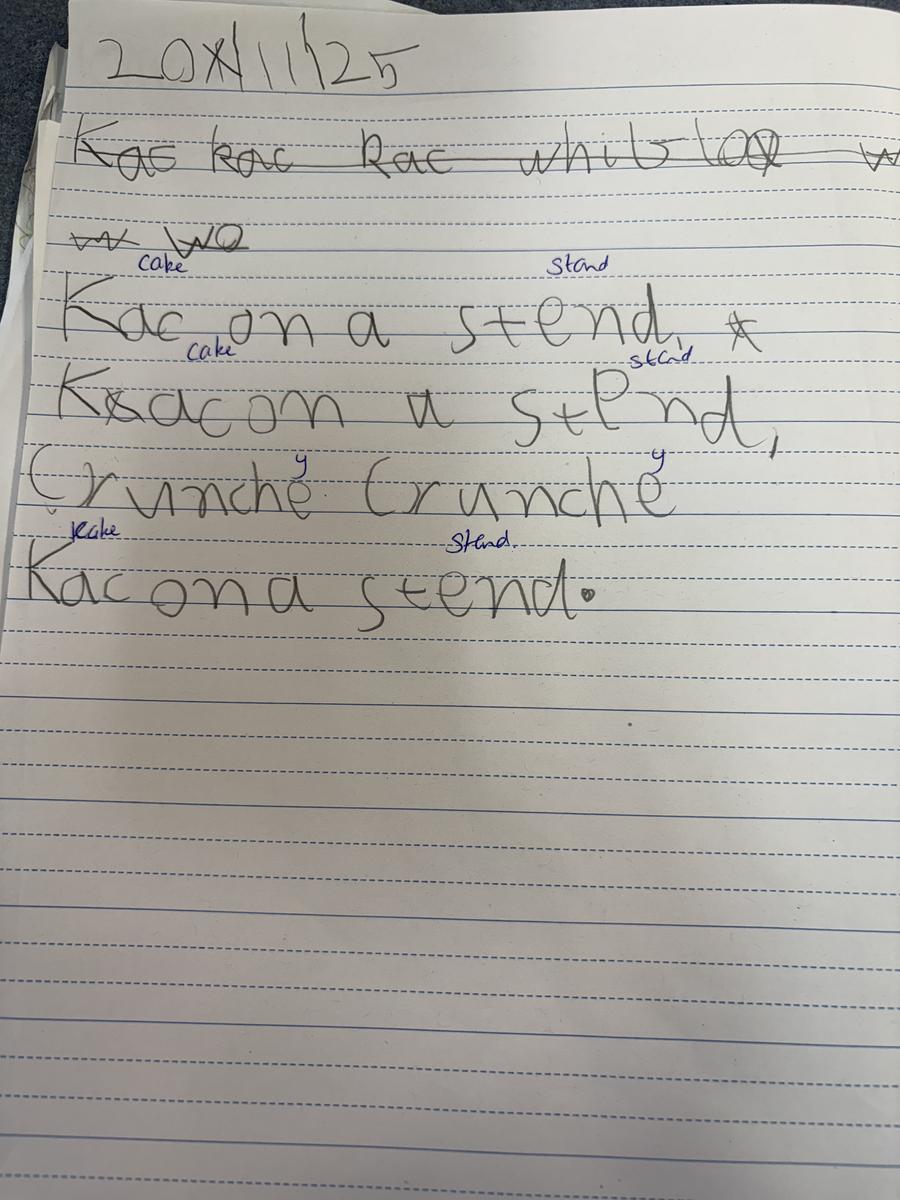 20/11/25
Kac kac kac
cake stand
Kac on a stend,
cake stand
Kac on a stend,
y y
Crunche Crunche
Kake Stend.
Kac on a stend.